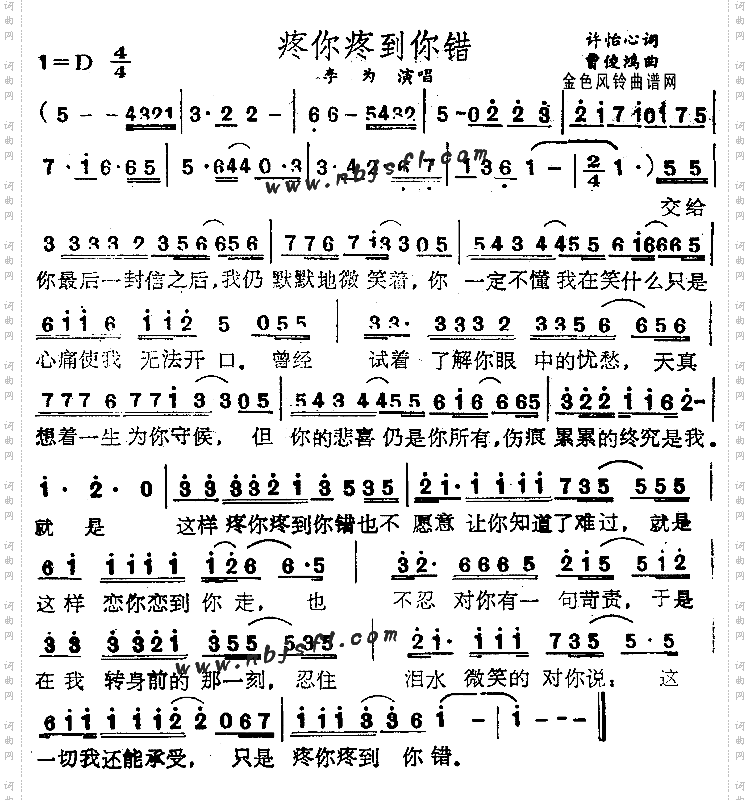 疼你疼到你错
1=D 4/4
许怡心词
李为 演唱
曹俊鸿曲
金色风铃曲谱网
(5 - - 4321 | 3·2 2 - | 6 6· 5432 | 5 - 0 2 2 3 | 2 1 7 1 0 1 7 5
7·1 6·6 5 | 5·6 4 4 0·3
www.nbfsfl.com
1 3 6 1 - | 2/4 1·) 5 5
交给
3 3 3 3 2 3 5 6 6 5 6 | 7 7 6 7 7 1 3 3 0 5 | 5 4 3 4 4 5 5 6 1 6 6 6 5
你最后一封信之后,我仍 默默地微笑着,你 一定不懂我在笑什么只是
6 1 1 6 1 1 2 5 0 5 5 | 3 3· 3 3 3 2 3 3 5 6 6 5 6
心痛使我 无法开口。曾经 试着 了解你眼 中的忧愁,天真
7 7 7 6 7 7 1 3 3 0 5 | 5 4 3 4 4 5 5 6 1 6 6 6 5 | 3 2 2 1 1 6 2 -
想着一生为你守候, 但 你的悲喜仍是你所有,伤痕 累累的终究是我。
1· 2· 0 | 3 3 3 3 2 1 3 5 3 5 | 2 1· 1 1 1 1 7 3 5 5 5 5
就 是 这样 疼你疼到你错也不 愿意 让你知道了难过,就是
6 1 1 1 1 1 1 2 6 6·5 | 3 2· 6 6 6 5 2 1 5 5 1 2
这样 恋你恋到 你走, 也 不忍 对你有一 句苛责,于是
3 3 3 3 2 1 3 5 5 5 3 5 | 2 1· 1 1 1 7 3 5 5·5
www.nbfsfl.com
在我 转身前的 那一刻,忍住 泪水 微笑的 对你说: 这
6 1 1 1 1 1 2 2 0 6 7 | 1 1 1 3 3 6 1 - | 1 - - - ‖
一切我还能承受, 只是 疼你疼到 你 错。
词曲网